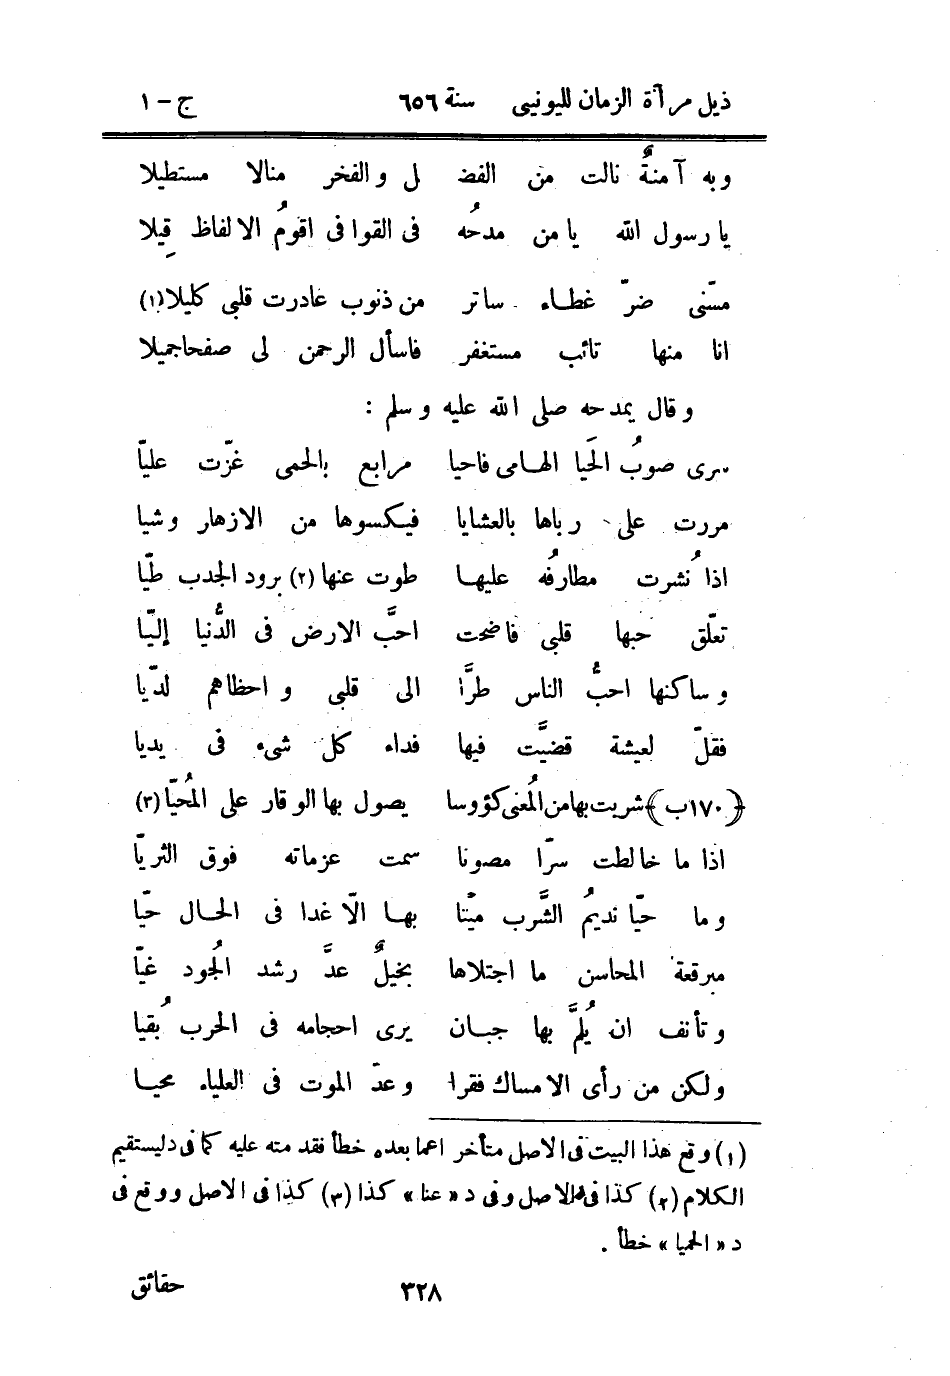 ذيل مرآة الزمان لليونينى سنة ٦٥٦ ج - ١
وبه آمنةٌ نالت من الفضـ ل والفخر منالا مستطيلا
يا رسول الله يا من مدحُه فى القوافى اقومُ الالفاظ قِيلا
مسّنى ضرّ غطاء ساتر من ذنوب غادرت قلبى كليلا (١)
انا منها تائب مستغفر فاسأل الرحمن لى صفحا جميلا
وقال يمدحه صلى الله عليه وسلم :
سرى صوبُ الحَيا الهامى فاحيا مرابع بالحمى عزّت عليّا
مررت على رباها بالعشايا فيكسوها من الازهار وشيا
اذا نُشرت مطارفُه عليها طوت عنها (٢) برود الجدب طيّا
تعلّق حبها قلبى فاضحت احبَّ الارض فى الدُّنيا إليّا
وساكنها احبُّ الناس طرًّا الى قلبى واحظاهم لديّا
فقلّ لعيشة قضيَّت فيها فداء كل شىء فى يديا
﴿١٧٠ب﴾ شربت بها من المُعنى كؤوسا يصول بها الوقار على المُحيّا (٣)
اذا ما خالطت سرّا مصونا سمت عزماته فوق الثريّا
وما حيّا نديمُ الشَّرب ميّتا بها الّا غدا فى الحال حيّا
مبرقعة المحاسن ما اجتلاها بخيلٌ عدَّ رشد الجُود غيّا
وتأنف ان يُلمَّ بها جبان يرى احجامه فى الحرب بُقيا
ولكن من رأى الامساك فقرا وعدّ الموت فى العلياء محيا
(١) وقع هذا البيت فى الاصل متأخر اعما بعده خطأ فقد مته عليه كما فى د ليستقيم
الكلام (٢) كذا فى الاصل وفى د « عنا » كذا (٣) كذا فى الاصل ووقع فى
د « الحميا » خطأ .
٣٢٨ حقائق